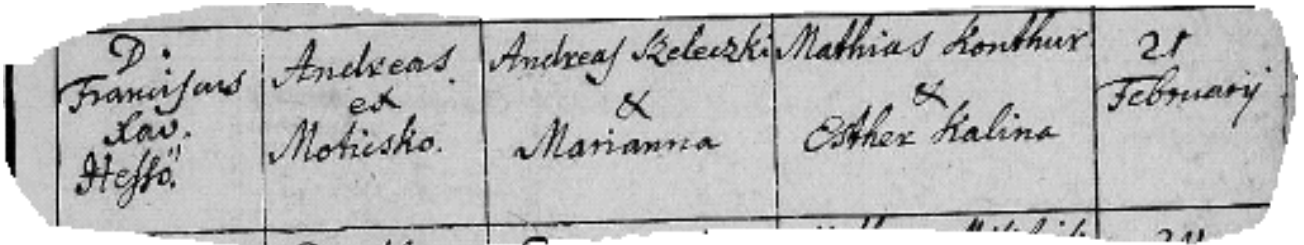 D.
Franciscus
Xav.
Hessö
Andreas
ex
Moticsko.
Andreas Szeleczki
&
Marianna
Mathias Konthur
&
Esther Kalina
21
Februarij